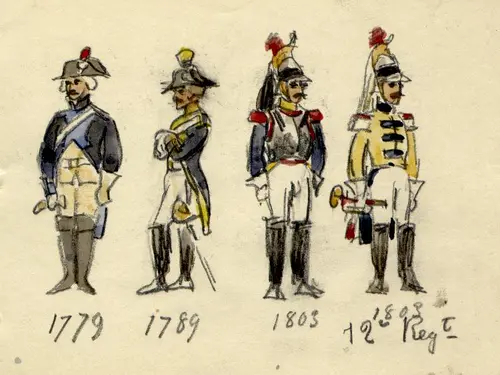 1779
1789
1803
1803
12e Regt